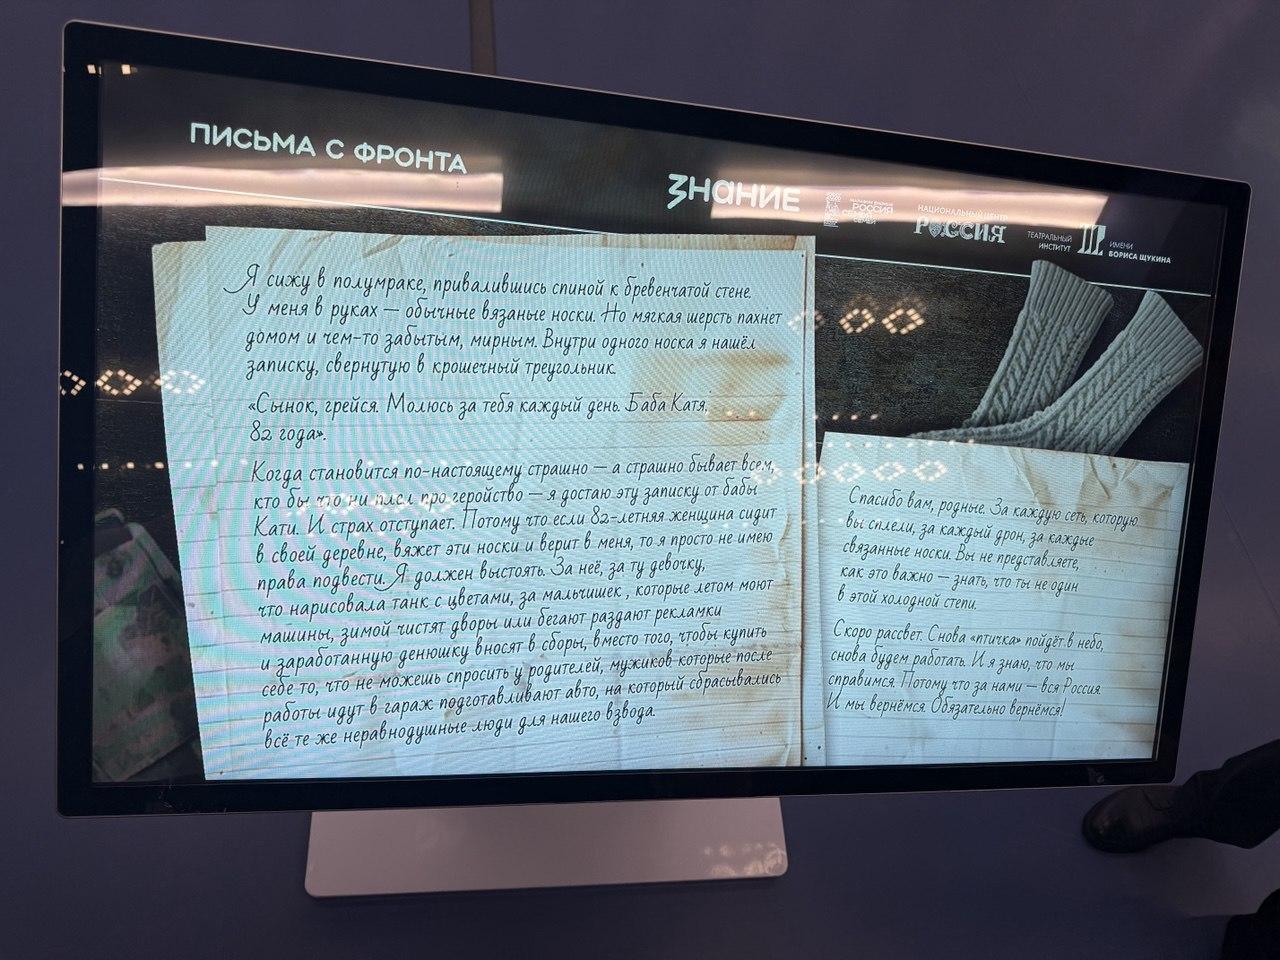 ПИСЬМА С ФРОНТА
ЗНАНИЕ
РОССИЯ
НАЦИОНАЛЬНЫЙ ЦЕНТР
РОССИЯ
ТЕАТРАЛЬНЫЙ
ИНСТИТУТ
ИМЕНИ
БОРИСА ЩУКИНА
Я сижу в полумраке, привалившись спиной к бревенчатой стене.
У меня в руках — обычные вязаные носки. Но мягкая шерсть пахнет
домом и чем-то забытым, мирным. Внутри одного носка я нашёл
записку, свернутую в крошечный треугольник.
«Сынок, грейся. Молюсь за тебя каждый день. Баба Катя.
82 года».
Когда становится по-настоящему страшно — а страшно бывает всем,
кто бы что ни плел про геройство — я достаю эту записку от бабы
Кати. И страх отступает. Потому что если 82-летняя женщина сидит
в своей деревне, вяжет эти носки и верит в меня, то я просто не имею
права подвести. Я должен выстоять. За неё, за ту девочку,
что нарисовала танк с цветами, за мальчишек , которые летом моют
машины, зимой чистят дворы или бегают раздают рекламки
и заработанную денюшку вносят в сборы, вместо того, чтобы купить
себе то, что не можешь спросить у родителей, мужиков которые после
работы идут в гараж подготавливают авто, на который сбрасывались
всё те же неравнодушные люди для нашего взвода.
Спасибо вам, родные. За каждую сеть, которую
вы сплели, за каждый дрон, за каждые
связанные носки. Вы не представляете,
как это важно — знать, что ты не один
в этой холодной степи.
Скоро рассвет. Снова «птичка» пойдёт в небо,
снова будем работать. И я знаю, что мы
справимся. Потому что за нами — вся Россия.
И мы вернёмся. Обязательно вернёмся!